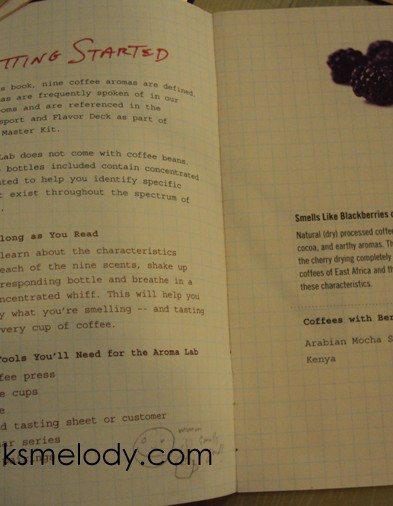 TTING STARTED
s book, nine coffee aromas are defined.
as are frequently spoken of in our
ooms and are referenced in the
sport and Flavor Deck as part of
Master Kit.
Lab does not come with coffee beans.
bottles included contain concentrated
ated to help you identify specific
t exist throughout the spectrum of
long as You Read
learn about the characteristics
each of the nine scents, shake up
responding bottle and breathe in a
ncentrated whiff. This will help you
y what you're smelling -- and tasting
very cup of coffee.
ools You'll Need for the Aroma Lab
fee press
e cups
e
d tasting sheet or customer
ar series
ksmelody.com
Smells Like Blackberries o
Natural (dry) processed coffee
cocoa, and earthy aromas. Th
the cherry drying completely
coffees of East Africa and th
these characteristics.
Coffees with Ber
Arabian Mocha S
Kenya